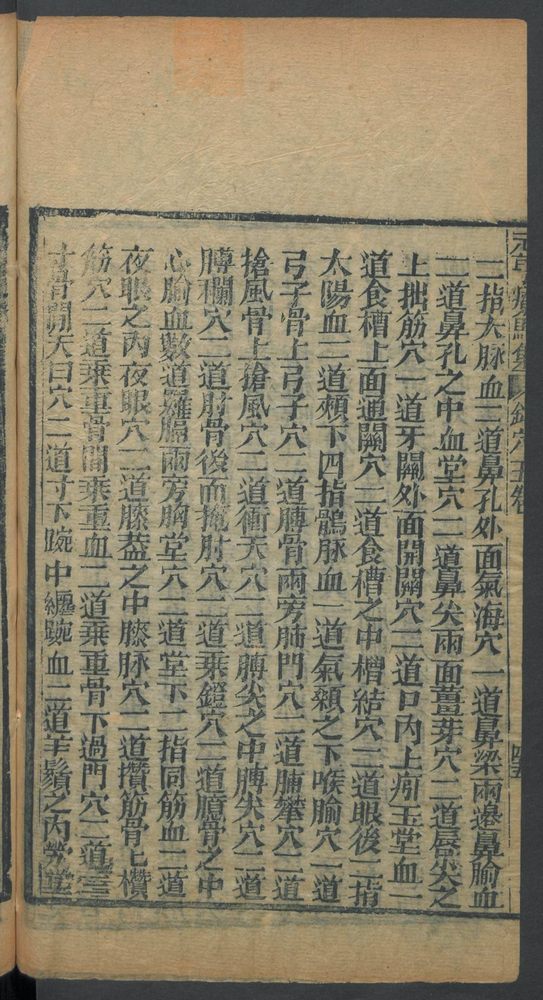 元亨療馬集 針穴五卷 四五
二指大脉血二道鼻孔外面氣海穴一道鼻梁兩邊鼻腧血
二道鼻孔之中血堂穴二道鼻尖兩面薑芽穴二道唇尖之
上拙筋穴一道牙關外面開關穴二道口內上痾玉堂血二
道食槽上面通關穴二道食槽之中槽結穴二道眼後二指
太陽血二道頰下四指鶻脉血二道氣顙之下喉腧穴一道
弓子骨上弓子穴二道膊骨兩旁肺門穴二道肺攀穴二道
搶風骨上搶風穴二道衝天穴二道膊尖之中膊尖穴二道
膊欄穴二道肘骨後面掩肘穴二道乗鐙穴二道臆骨之中
心腧血數道羅膈兩旁胸堂穴二道堂下二指同筋血二道
夜眼之內夜眼穴二道膝蓋之中膝脉穴二道攢筋骨上攢
筋穴二道乗重骨間乗重血二道乗重骨下過門穴二道
寸骨間天臼穴二道寸下踠中纏踠血二道羊鬚之內勞堂